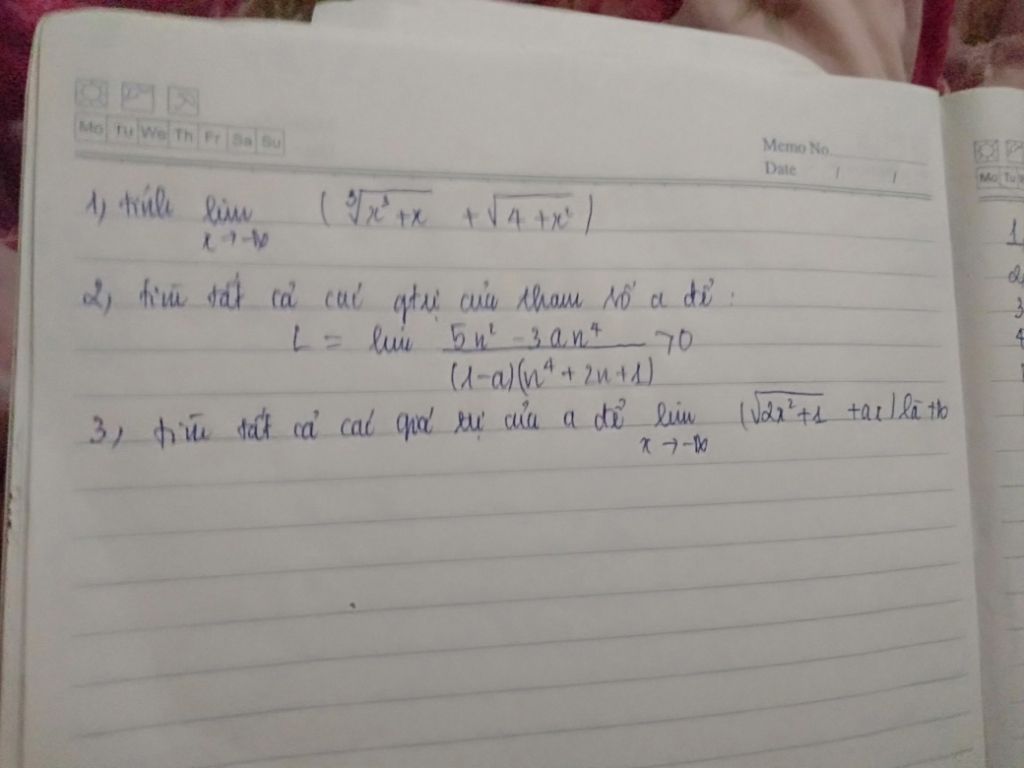 Mo Tu We Th Fr Sa Su
Memo No
Date / /
1, tính lim (∛x³+x + √4+x²)
x→-∞
2, tìm tất cả các gtrị của tham số a để:
L = lim 5n² - 3an⁴ >0
(1-a)(n⁴+2n+1)
3, tìm tất cả các giá trị của a để lim (√2x²+1 +ax) là +∞
x→-∞
Mo Tu W
1
2
3
4